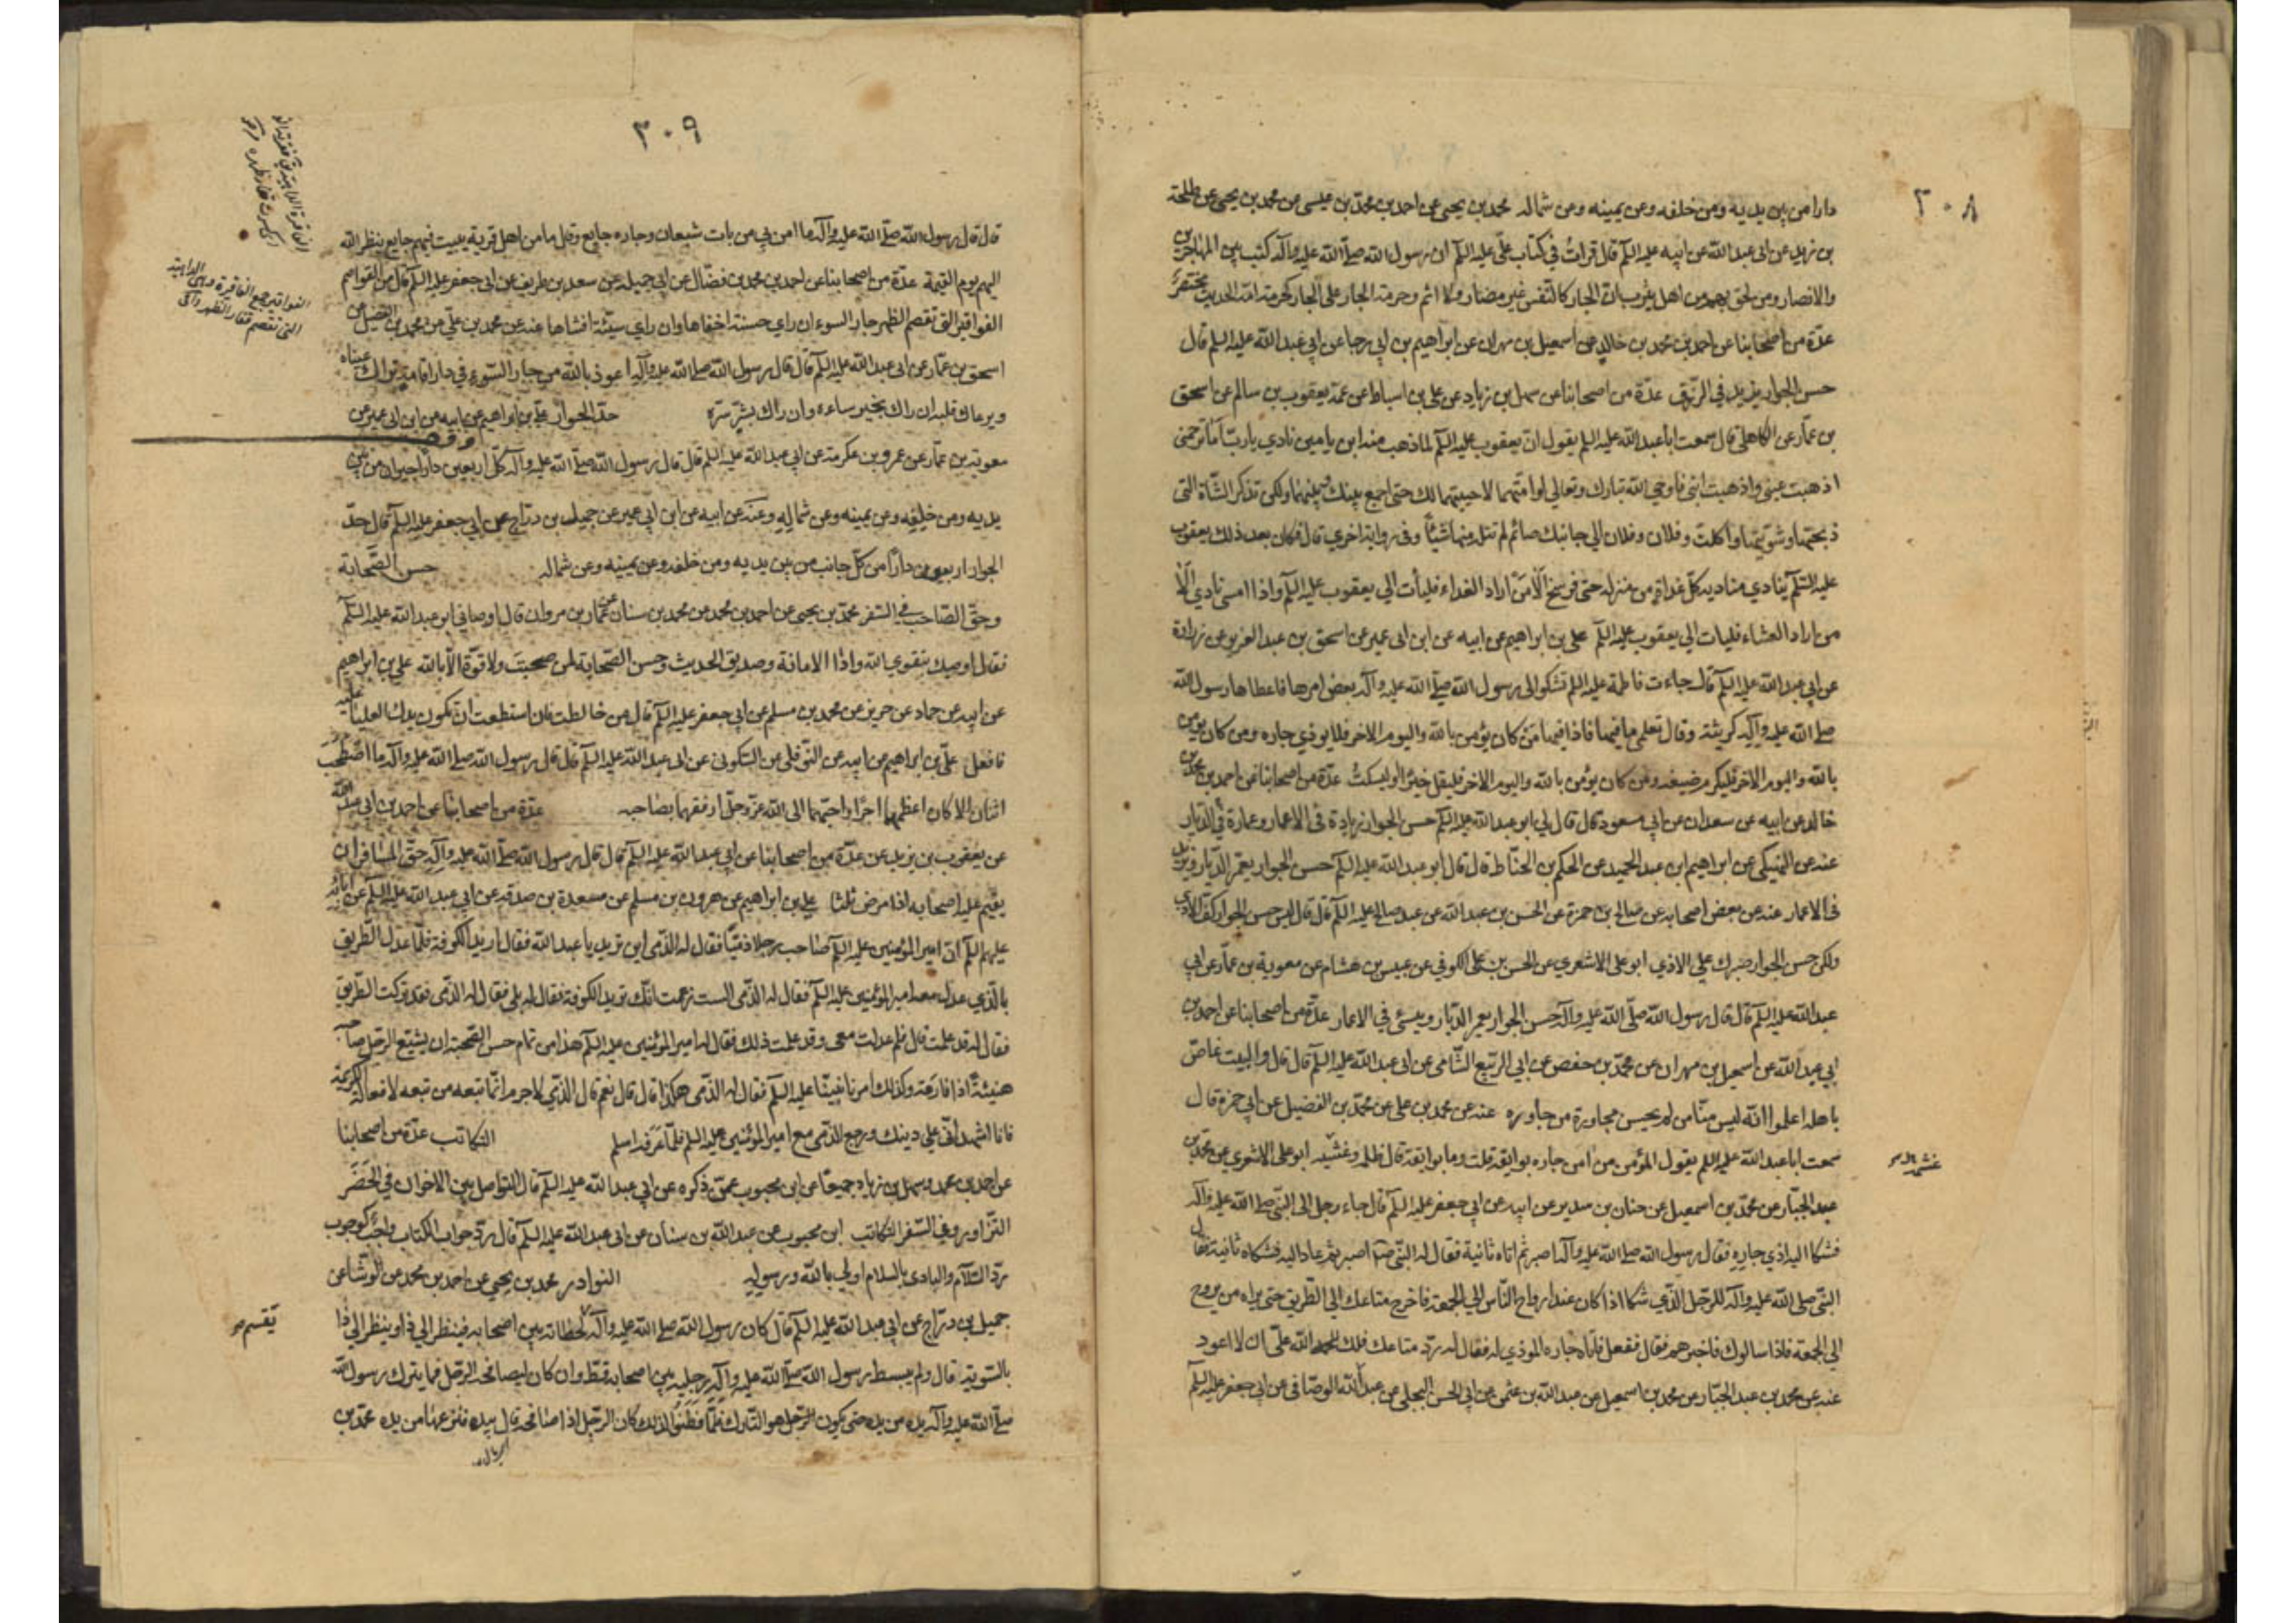 ٣٠٨
دارا من بين يديه ومن خلفه وعن يمينه ومن شماله محمد بن يحيى عن احمد بن محمد بن عيسى عن محمد بن يحيى عن طلحة
بن زيد عن ابى عبد الله عن ابيه عليه السلم قال قرات في كتاب علي عليه السلم ان رسول الله صلى الله عليه وآله كتب بين المهاجرين
والانصار ومن لحق بهم من اهل يثرب ان الجار كالنفس غير مضار ولا اثم وحرمة الجار على الجار كحرمة امه الحديث مختصر
عدة من اصحابنا عن احمد بن محمد بن خالد عن اسمعيل بن مهران عن ابراهيم بن ابي رجا عن ابي عبد الله عليه السلم قال
حسن الجوار يزيد في الرزق عدة من اصحابنا عن سهل بن زياد عن علي بن اسباط عن عمه يعقوب بن سالم عن اسحق
بن عمار عن الكاهلي قال سمعت ابا عبد الله عليه السلم يقول ان يعقوب عليه السلم لما ذهب منه ابن يامين نادي يارب اما ترحمني
اذهبت عيني واذهبت ابني فاوحي الله تبارك وتعالي لو امتهما لاحييتهما لك حتى اجمع بينك وبينهما ولكن تذكر الشاة التي
ذبحتها وشويتها واكلت وفلان وفلان الي جانبك صائم لم تنله منها شيئا وفي رواية اخري قال فكان بعد ذلك يعقوب
عليه السلم ينادي مناديه كل غداة من منزله حتى فرسخ الا من اراد الغداء فليأت الي يعقوب عليه السلم واذا امسى نادي الا
من اراد العشاء فليات الي يعقوب عليه السلم علي بن ابراهيم عن ابيه عن ابن ابى عمير عن اسحق بن عبد العزيز عن زرارة
عن ابي عبد الله عليه السلم قال جاءت فاطمة عليه السلم تشكو الى رسول الله صلى الله عليه وآله بعض امرها فاعطاها رسول الله
صلى الله عليه وآله كريسة وقال تعلمي ما فيها فاذا فيها من كان يؤمن بالله واليوم الاخر فلا يوذي جاره ومن كان يؤمن
بالله واليوم الاخر فليكرم ضيفه ومن كان يؤمن بالله واليوم الاخر فليقل خيرا او ليسكت عدة من اصحابنا عن احمد بن محمد بن
خالد عن ابيه عن سعدان عن ابي مسعود قال قال لي ابو عبد الله عليه السلم حسن الجوار زيادة في الاعمار وعمارة في الديار
عنه عن النهيكي عن ابراهيم بن عبد الحميد عن الحكم بن الحناط قال قال ابو عبد الله عليه السلم حسن الجوار يعمر الديار ويزيد
في الاعمار عنه عن بعض اصحابه عن صالح بن حمزة عن الحسن بن عبد الله عن عبد صالح عليه السلم قال قال ليس حسن الجوار كف الاذي
ولكن حسن الجوار صبرك علي الاذي ابو على الاشعري عن الحسن بن علي الكوفي عن عبيس بن هشام عن معوية بن عمار عن ابي
عبد الله عليه السلم قال قال رسول الله صلى الله عليه وآله حسن الجوار يعمر الديار وينسئ في الاعمار عدة من اصحابنا عن احمد بن
ابي عبد الله عن اسمعيل بن مهران عن محمد بن حفص عن ابي الربيع الشامي عن ابى عبد الله عليه السلم قال قال والبيت غاص
باهله اعلموا انه ليس منا من لم يحسن مجاورة من جاوره عنه عن محمد بن على عن محمد بن الفضيل عن ابي حمزة قال
سمعت ابا عبد الله عليه السلم يقول المؤمن من امن جاره بوايقه قلت وما بوايقه قال ظلمه وغشمه ابو على الاشعري عن محمد بن
عبد الجبار عن محمد بن اسمعيل عن حنان بن سدير عن ابيه عن ابي جعفر عليه السلم قال جاء رجل الى النبي صلى الله عليه وآله
فشكا اليه اذي جاره فقال رسول الله صلى الله عليه وآله اصبر ثم اتاه ثانية فقال له النبي ص اصبر ثم عاد اليه فشكاه ثانية فقال
النبي صلى الله عليه وآله للرجل الذي شكا اذا كان عند رواح الناس الي الجمعة فاخرج متاعك الي الطريق حتى يراه من يروح
الي الجمعة فاذا سالوك فاخبرهم فقال ففعل فاتاه جاره الموذي له فقال له رد متاعك فلك الله علي ان لا اعود
عنه عن محمد بن عبد الجبار عن محمد بن اسمعيل عن عبد الله بن عثمن عن ابي الحسن البجلي عن عبد الله الوصافي عن ابي جعفر عليه السلم
٣٠٩
قال قال رسول الله صلى الله عليه وآله ما امن بي من بات شبعان وجاره جايع وقال ما من اهل قرية يبيت فيهم جايع ينظر الله
اليهم يوم القيمة عدة من اصحابنا عن احمد بن محمد بن فضال عن ابي جميلة عن سعد بن طريف عن ابى جعفر عليه السلم قال من القواصم
الفواقر التي تقصم الظهر جار السوء ان راي حسنة اخفاها وان راي سيئة افشاها عنه عن محمد بن علي عن محمد بن الفضيل عن
اسحق بن عمار عن ابى عبد الله عليه السلم قال قال رسول الله صلى الله عليه وآله اعوذ بالله من جار السوء في دار اقامة تراك عيناه
ويرعاك قلبه ان راك بخير ساءه وان راك بشر سره حد الجوار علي بن ابراهيم عن ابيه عن ابن ابى عمير عن
معوية بن عمار عن عمرو بن عكرمة عن ابي عبد الله عليه السلم قال قال رسول الله صلى الله عليه وآله كل اربعين دارا جيران من بين
يديه ومن خلفه وعن يمينه وعن شماله وعنه عن ابيه عن ابن ابي عمير عن جميل بن دراج عن ابي جعفر عليه السلم قال حد
الجوار اربعون دارا من كل جانب من بين يديه ومن خلفه وعن يمينه وعن شماله حسن الصحابة
وحق الصاحب في السفر محمد بن يحيى عن احمد بن محمد عن محمد بن سنان عن عمار بن مروان قال اوصاني ابو عبد الله عليه السلم
فقال اوصيك بتقوي الله واداء الامانة وصدق الحديث وحسن الصحابة لمن صحبت ولا قوة الا بالله علي بن ابراهيم
عن ابيه عن حماد عن حريز عن محمد بن مسلم عن ابي جعفر عليه السلم قال من خالطت فان استطعت ان تكون يدك العليا عليه
فافعل علي بن ابراهيم عن ابيه عن النوفلي عن السكوني عن ابى عبد الله عليه السلم قال قال رسول الله صلى الله عليه وآله ما اصطحب
اثنان الا كان اعظمهما اجرا واحبهما الى الله عز وجل ارفقهما بصاحبه عدة من اصحابنا عن احمد بن ابي عبد الله
عن يعقوب بن يزيد عن عدة من اصحابنا عن ابي عبد الله عليه السلم قال قال رسول الله صلى الله عليه وآله حق المسافر ان
يقيم عليه اصحابه اذا مرض ثلثا علي بن ابراهيم عن هرون بن مسلم عن مسعدة بن صدقة عن ابي عبد الله عليه السلم عن ابائه
عليهم السلم ان امير المؤمنين عليه السلم صاحب رجلا ذميا فقال له الذمي اين تريد يا عبد الله فقال اريد الكوفة فلما عدل الطريق
بالذمي عدل معه امير المؤمنين عليه السلم فقال له الذمي الست زعمت انك تريد الكوفة فقال له بلى فقال له الذمي فقد تركت الطريق
فقال له قد علمت قال فلم عدلت معي وقد علمت ذلك فقال له امير المؤمنين عليه السلم هذا من تمام حسن الصحبة ان يشيع الرجل صاحبه
هنيئة اذا فارقه وكذلك امرنا نبينا عليه السلم فقال له الذمي هكذا قال قال نعم قال الذمي لا جرم انما تبعه من تبعه لافعاله الكريمة
فانا اشهد اني علي دينك ورجع الذمي مع امير المؤمنين عليه السلم فلما عرفه اسلم التكاتب عدة من اصحابنا
عن احمد بن محمد وسهل بن زياد جميعا عن ابن محبوب عمن ذكره عن ابي عبد الله عليه السلم قال التواصل بين الاخوان في الحضر
التزاور وفي السفر التكاتب ابن محبوب عن عبد الله بن سنان عن ابى عبد الله عليه السلم قال رد جواب الكتاب واجب كوجوب
رد السلام والبادي بالسلام اولي بالله ورسوله النوادر محمد بن يحيي عن احمد بن محمد عن الوشا عن
جميل بن دراج عن ابي عبد الله عليه السلم قال كان رسول الله صلى الله عليه وآله لحظاته بين اصحابه فينظر الي ذا وينظر الي ذا
بالسوية قال ولم يبسط رسول الله صلى الله عليه وآله رجليه بين اصحابه قط وان كان ليصافحه الرجل فما يترك رسول الله
صلى الله عليه وآله يده من يده حتى يكون الرجل هو التارك فلما فطنوا لذلك كان الرجل اذا صافحه قال بيده فنزعها من يده عدة بن
الفواقر جمع الفاقرة وهي الداهية
التي تقصم فقار الظهر
يقسم